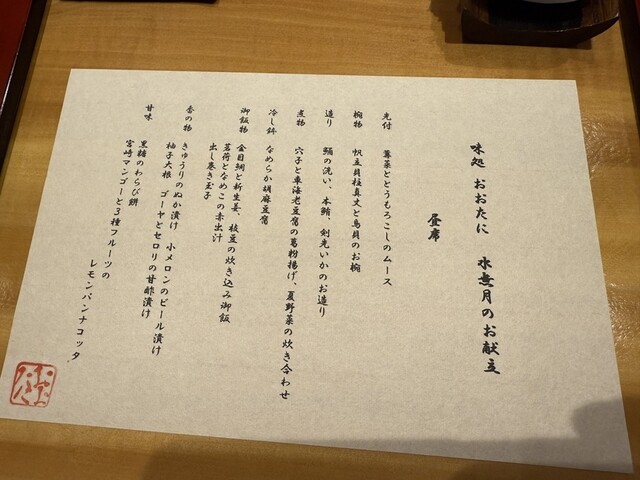 味処 おおたに 水無月のお献立
昼席
先付 蓴菜ととうもろこしのムース
椀物 帆立貝柱真丈と鳥貝のお椀
造り 鱸の洗い、本鮪、剣先いかのお造り
煮物 穴子と車海老豆腐の葛粉揚げ、夏野菜の炊き合わせ
冷し鉢 なめらか胡麻豆腐
御飯物 金目鯛と新生姜、枝豆の炊き込み御飯
茗荷となめこの赤出汁
出し巻き玉子
香の物 きゅうりのぬか漬け 小メロンのビール漬け
柚子大根 ゴーヤとセロリの甘酢漬け
甘味 黒糖のわらび餅
宮崎マンゴーと3種フルーツの
レモンパンナコッタ